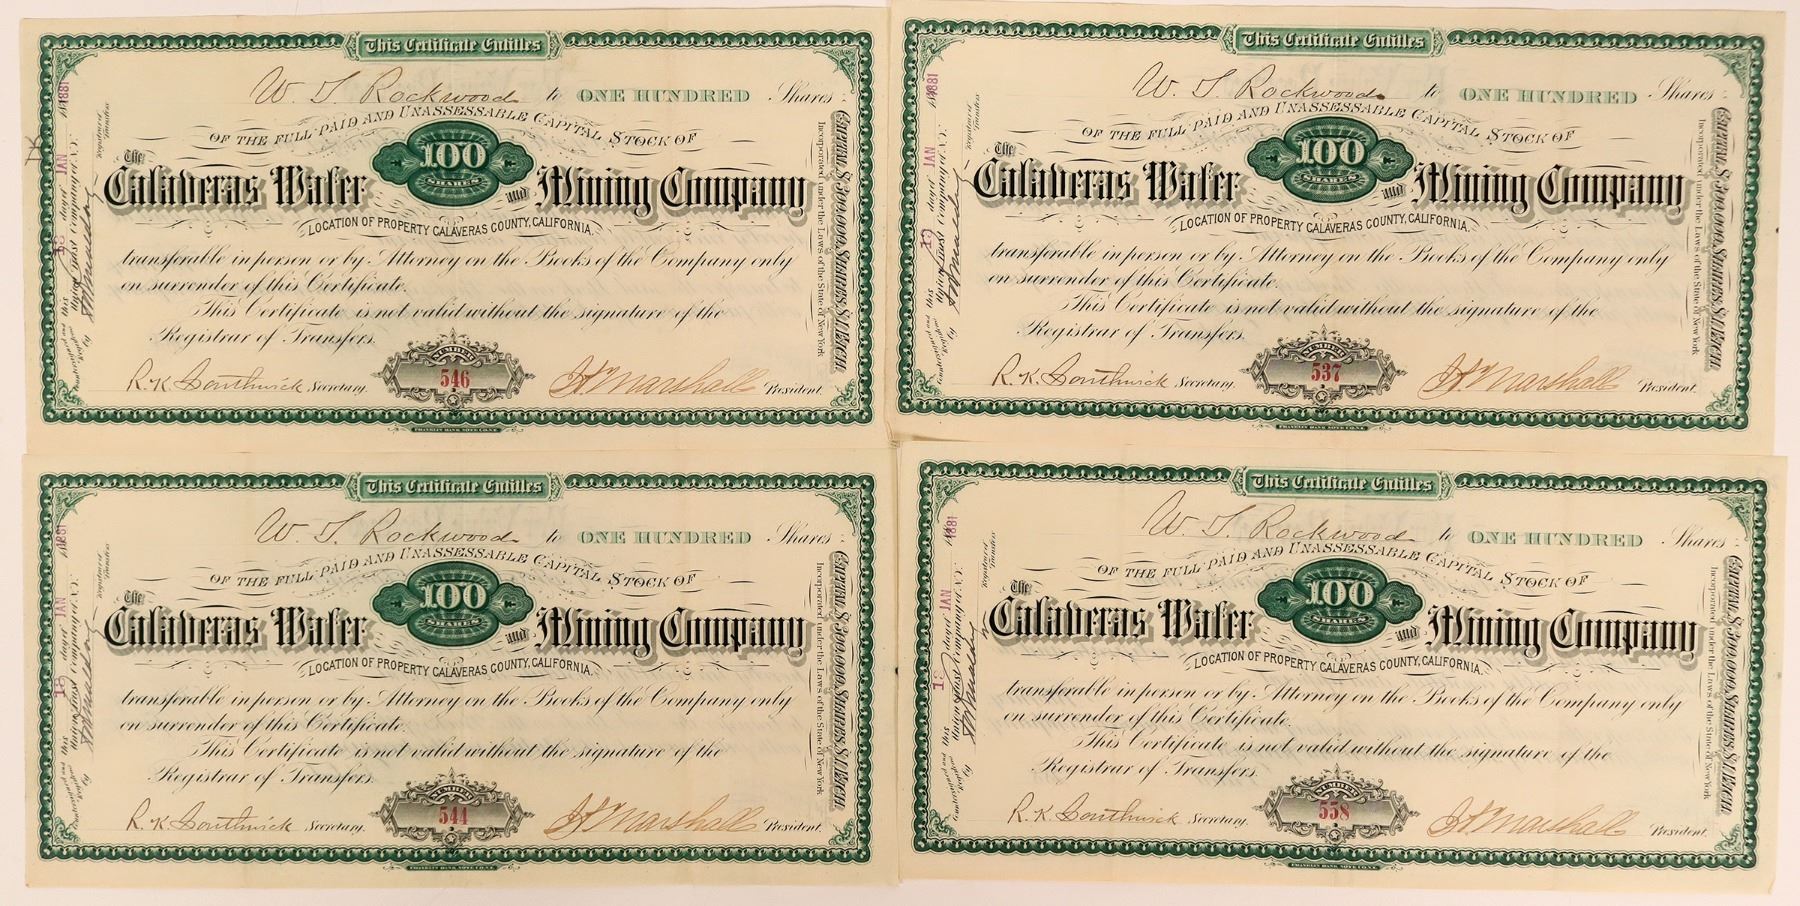 This Certificate Entitles
W. T. Rockwood to ONE HUNDRED Shares
OF THE FULL PAID AND UNASSESSABLE CAPITAL STOCK OF
The Calaveras Water 100 SHARES and Mining Company
LOCATION OF PROPERTY CALAVERAS COUNTY, CALIFORNIA.
transferable in person or by Attorney on the Books of the Company only
on surrender of this Certificate.
This Certificate is not valid without the signature of the
Registrar of Transfers.
R. K. Southwick Secretary. NUMBER 546 Marshall President.
FRANKLIN BANK NOTE CO. N.Y.
Countersigned and Registered this day of JAN 1881
Union Trust Company of N.Y.
by
Registrar of Transfers
Incorporated under the Laws of the State of New York
CAPITAL \$300,000, SHARES \$1 EACH
This Certificate Entitles
W. T. Rockwood to ONE HUNDRED Shares
OF THE FULL PAID AND UNASSESSABLE CAPITAL STOCK OF
The Calaveras Water 100 SHARES and Mining Company
LOCATION OF PROPERTY CALAVERAS COUNTY, CALIFORNIA.
transferable in person or by Attorney on the Books of the Company only
on surrender of this Certificate.
This Certificate is not valid without the signature of the
Registrar of Transfers.
R. K. Southwick Secretary. NUMBER 537 Marshall President.
FRANKLIN BANK NOTE CO. N.Y.
Countersigned and Registered this day of JAN 1881
Union Trust Company of N.Y.
by
Registrar of Transfers
Incorporated under the Laws of the State of New York
CAPITAL \$300,000, SHARES \$1 EACH
This Certificate Entitles
W. T. Rockwood to ONE HUNDRED Shares
OF THE FULL PAID AND UNASSESSABLE CAPITAL STOCK OF
The Calaveras Water 100 SHARES and Mining Company
LOCATION OF PROPERTY CALAVERAS COUNTY, CALIFORNIA.
transferable in person or by Attorney on the Books of the Company only
on surrender of this Certificate.
This Certificate is not valid without the signature of the
Registrar of Transfers.
R. K. Southwick Secretary. NUMBER 544 Marshall President.
FRANKLIN BANK NOTE CO. N.Y.
Countersigned and Registered this day of JAN 1881
Union Trust Company of N.Y.
by
Registrar of Transfers
Incorporated under the Laws of the State of New York
CAPITAL \$300,000, SHARES \$1 EACH
This Certificate Entitles
W. T. Rockwood to ONE HUNDRED Shares
OF THE FULL PAID AND UNASSESSABLE CAPITAL STOCK OF
The Calaveras Water 100 SHARES and Mining Company
LOCATION OF PROPERTY CALAVERAS COUNTY, CALIFORNIA.
transferable in person or by Attorney on the Books of the Company only
on surrender of this Certificate.
This Certificate is not valid without the signature of the
Registrar of Transfers.
R. K. Southwick Secretary. NUMBER 558 Marshall President.
FRANKLIN BANK NOTE CO. N.Y.
Countersigned and Registered this day of JAN 1881
Union Trust Company of N.Y.
by
Registrar of Transfers
Incorporated under the Laws of the State of New York
CAPITAL \$300,000, SHARES \$1 EACH